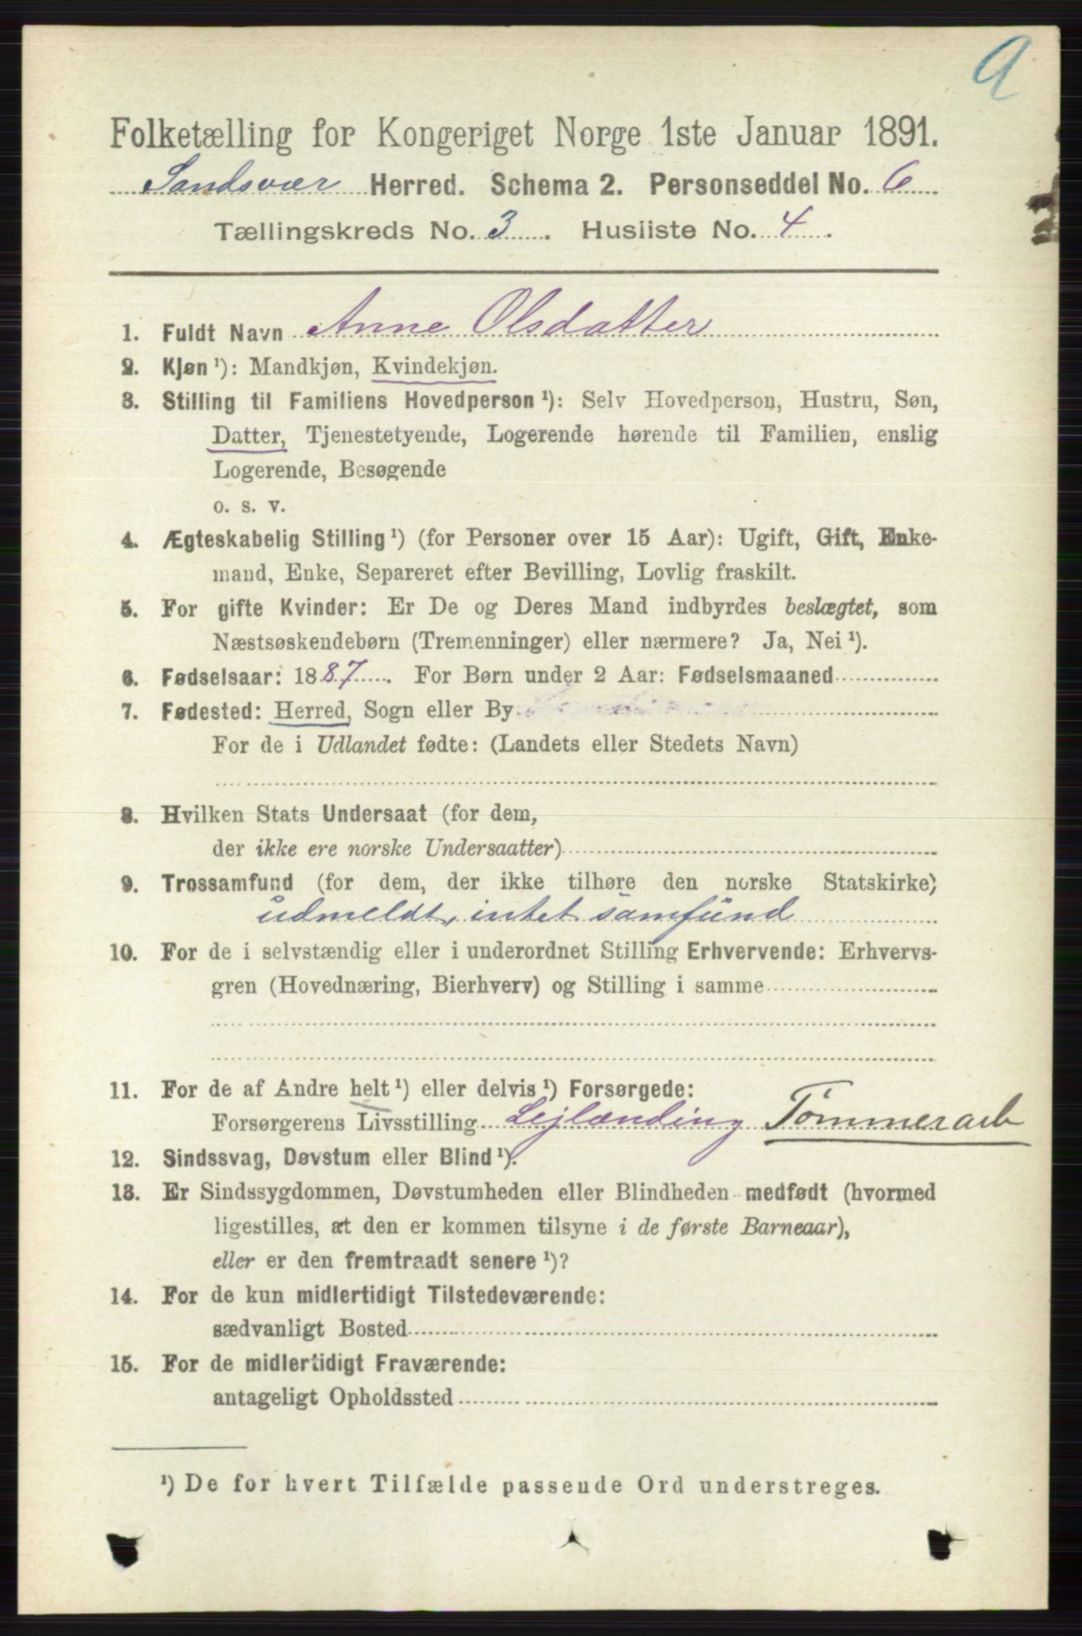 a
Folketælling for Kongeriget Norge 1ste Januar 1891.
Sandsvær Herred. Schema 2. Personseddel No. 6
Tællingskreds No. 3. Husliste No. 4.
1. Fuldt Navn Anne Olsdatter
2. Kjøn ¹): Mandkjøn, Kvindekjøn.
3. Stilling til Familiens Hovedperson ¹): Selv Hovedperson, Hustru, Søn,
Datter, Tjenestetyende, Logerende hørende til Familien, enslig
Logerende, Besøgende
o. s. v.
4. Ægteskabelig Stilling ¹) (for Personer over 15 Aar): Ugift, Gift, Enke-
mand, Enke, Separeret efter Bevilling, Lovlig fraskilt.
5. For gifte Kvinder: Er De og Deres Mand indbyrdes beslægtet, som
Næstsøskendebørn (Tremenninger) eller nærmere? Ja, Nei ¹).
6. Fødselsaar: 1887. For Børn under 2 Aar: Fødselsmaaned
7. Fødested: Herred, Sogn eller By
For de i Udlandet fødte: (Landets eller Stedets Navn)
8. Hvilken Stats Undersaat (for dem,
der ikke ere norske Undersaatter)
9. Trossamfund (for dem, der ikke tilhøre den norske Statskirke)
udmeldt, intet samfund
10. For de i selvstændig eller i underordnet Stilling Erhvervende: Erhvervs-
gren (Hovednæring, Bierhverv) og Stilling i samme
11. For de af Andre helt ¹) eller delvis ¹) Forsørgede:
Forsørgerens Livsstilling Lejlænding Tømmerarb
12. Sindssvag, Døvstum eller Blind ¹).
13. Er Sindssygdommen, Døvstumheden eller Blindheden medfødt (hvormed
ligestilles, at den er kommen tilsyne i de første Barneaar),
eller er den fremtraadt senere ¹)?
14. For de kun midlertidigt Tilstedeværende:
sædvanligt Bosted
15. For de midlertidigt Fraværende:
antageligt Opholdssted
¹) De for hvert Tilfælde passende Ord understreges.